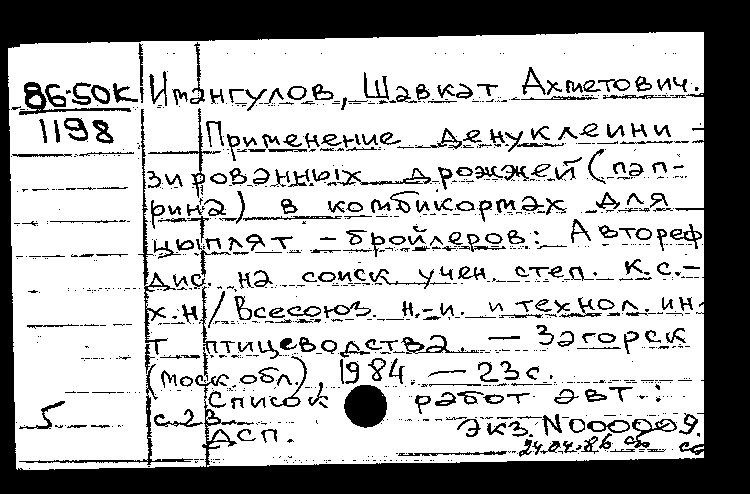 86-50К Имангулов, Шавкат Ахметович.
1198 Применение денуклеини-
зированных дрожжей (пап-
рина) в комбикормах для
цыплят-бройлеров: Автореф.
дис. на соиск. учен. степ. к.с.-
х.н/Всесоюз. н.-и. и технол. ин-
т птицеводства. — Загорск
(моск. обл.), 1984. — 23с.
Список работ авт.:
5 с.23.
ДСП. Экз. N000009.
24.04.86